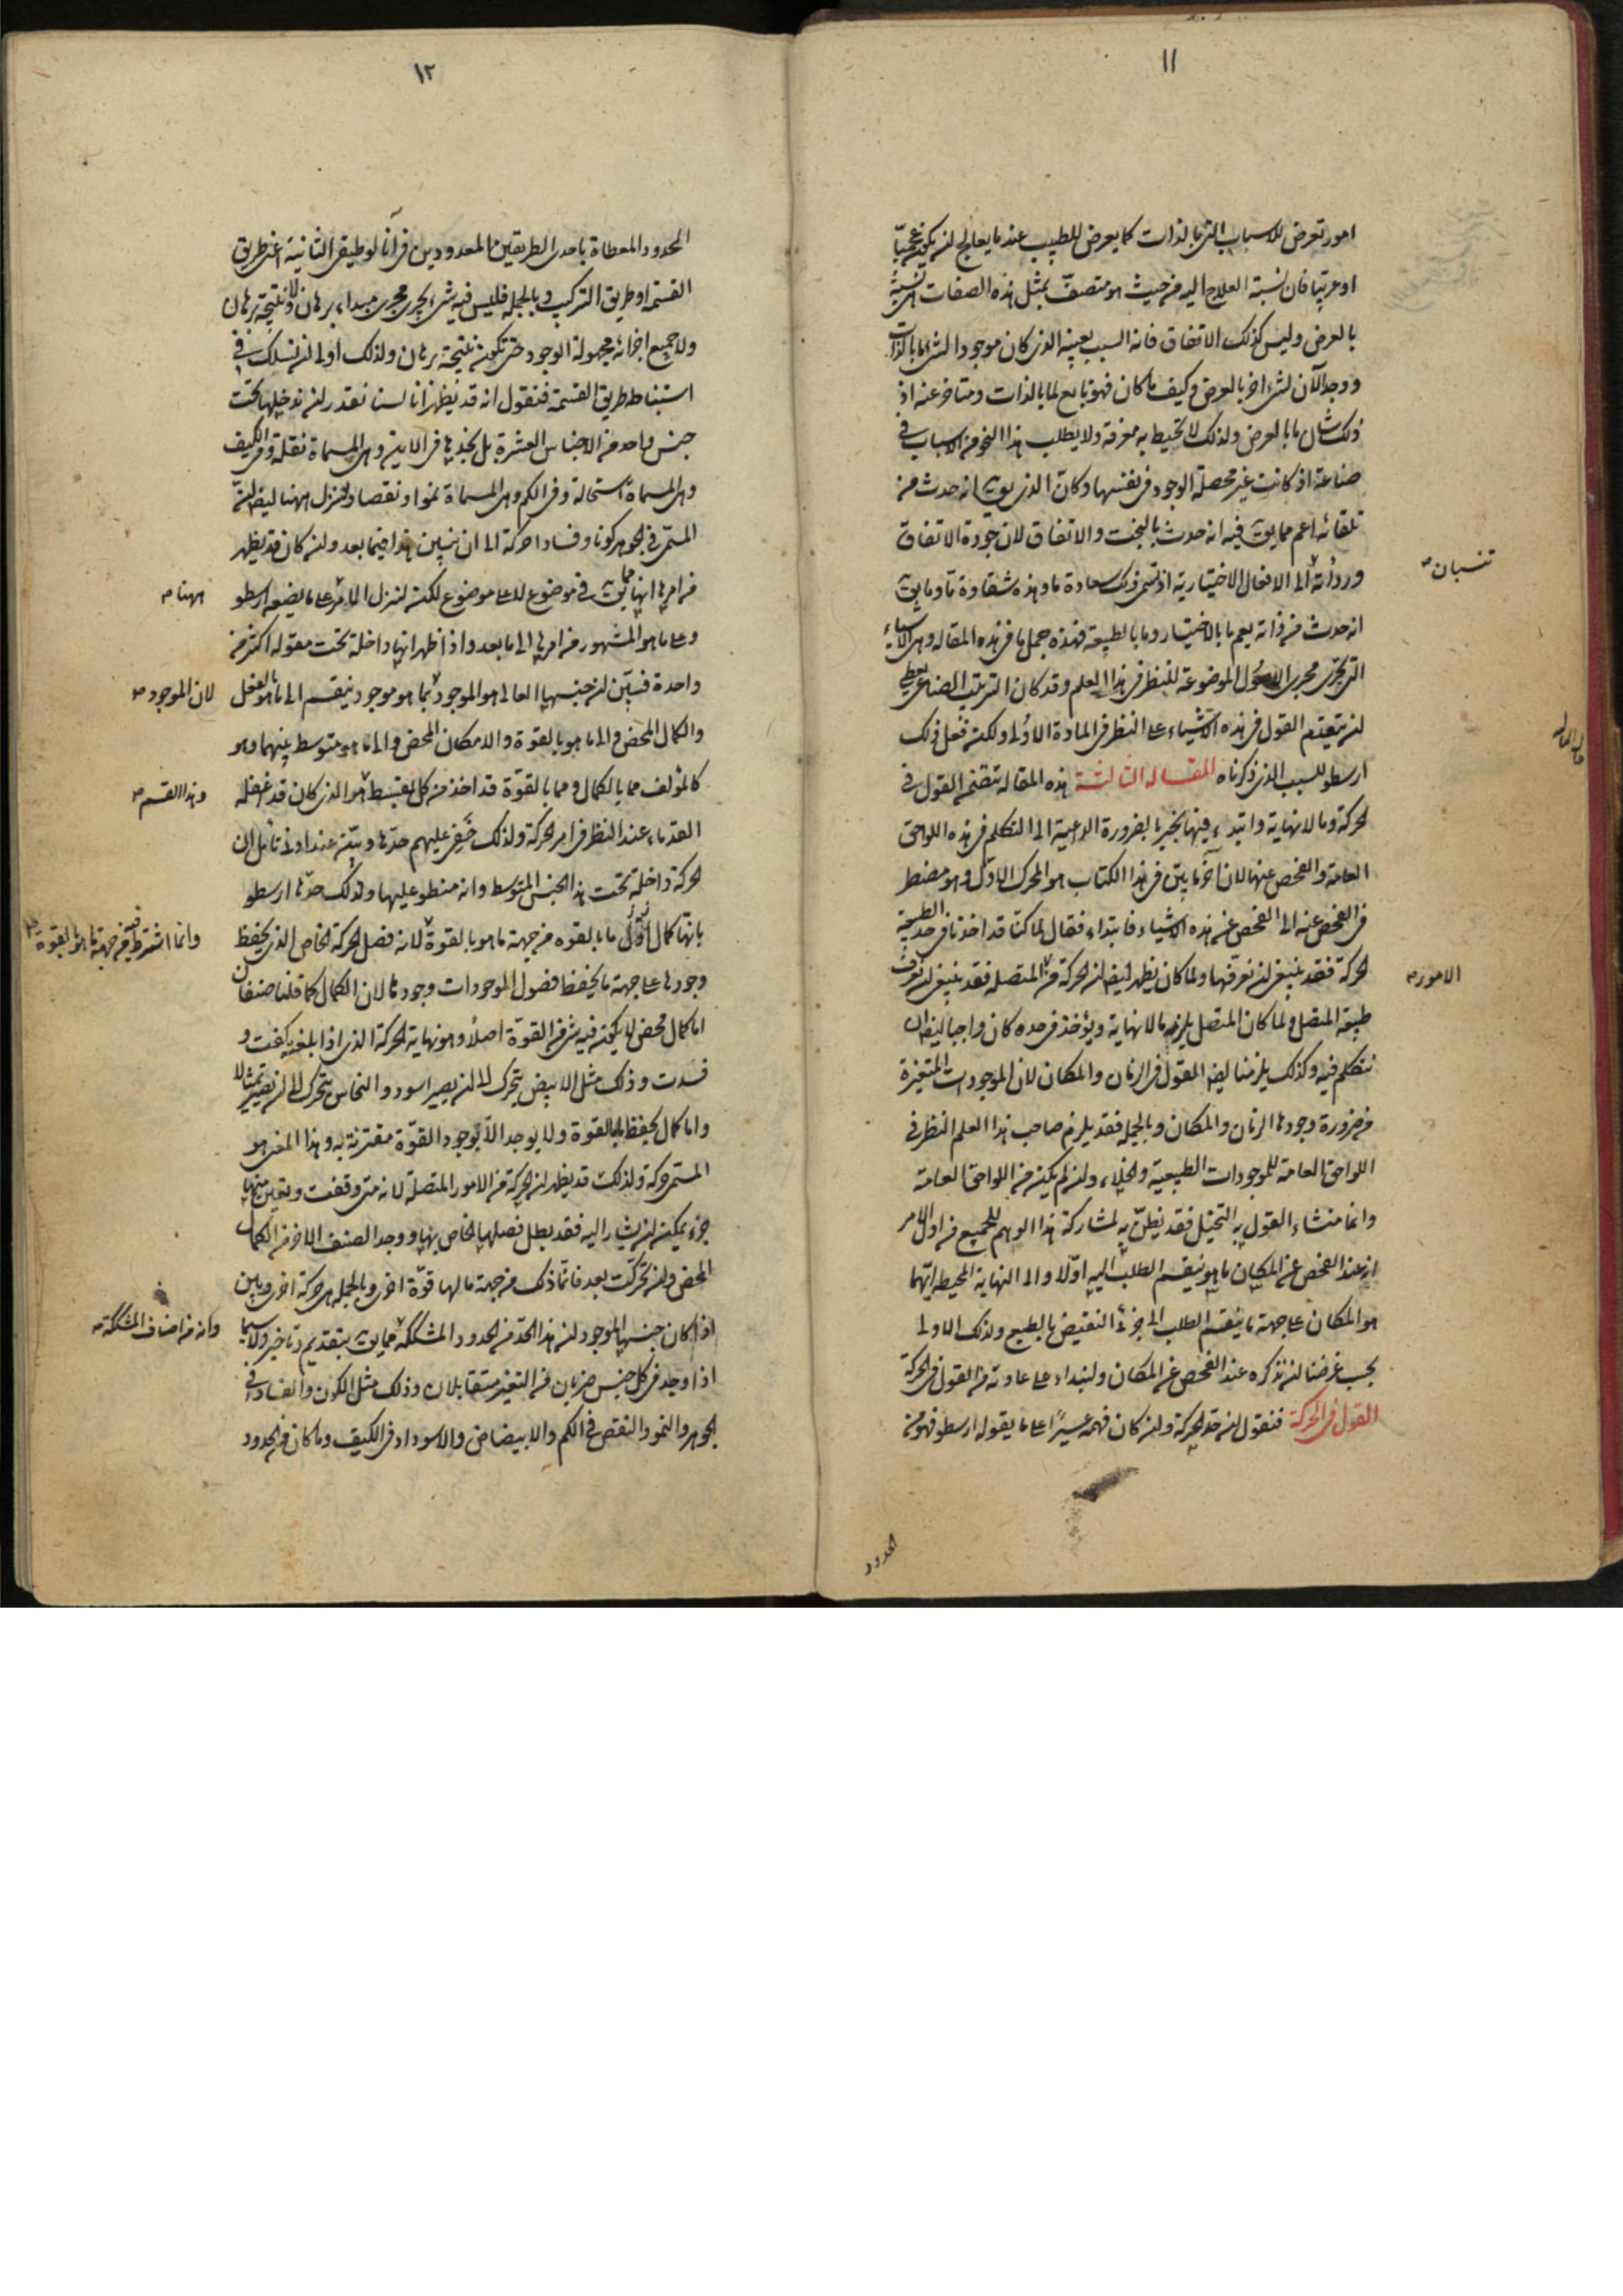 ١١
امور تعرض للاسباب التى بالذات كما يعرض للطبيب عندما يعالج ان يكون عجميّا
او عربيّا فان نسبة العلاج اليه من حيث هو متصف بمثل هذه الصفات هى نسبة
بالعرض وليس كذلك الاتفاق فانه السبب بعينه الذى كان موجودا لشئ ما بالذات
ووجد الآن لشئ اخر بالعرض وكيف ما كان فهو تابع لما بالذات ومتاخر عنه اذ
ذلك شان ما بالعرض ولذلك لا تحيط به معرفة ولا يطلب هذا النحو من الاسباب فى
صناعة اذ كانت غير محصلة الوجود فى نفسها وكان الذى يق انه حدث من
تلقائه اعم مما يق فيه انه حدث بالبخت والاتفاق لان جودة الاتفاق
ورداءته الى الافعال الاختيارية اذ تسمى ذلك سعادة ما وهذه شقاوة ما وما يق
تنسبان
انه حدث من ذاته يعم ما بالاختيار وما بالطبيعة فهذه جمل ما فى هذه المقاله وهى الاشياء
التى تجرى مجرى الاصول الموضوعة للنظر فى هذا العلم وقد كان الترتيب الصناعى يعطى
ان يتقدم القول فى هذه الاشياء على النظر فى المادة الاولى ولكن فعل ذلك
ارسطو للسبب الذى ذكرناه المقــاله الثالثــة هذه المقاله تتضمن القول فى
الحركة وما لا نهاية وابتدء فيها يخبر بالضرورة الداعية الى التكلم فى هذه اللواحق
العامة والفحص عنها لان آخر ما يبيّن فى هذا الكتاب هو المحرك الاوّل وهو مضطر
فى الفحص عنه الى الفحص عن هذه الاشياء فابتداء فقال لما كنّا قد اخذنا فى حد الطبيعة
الحركة فقد ينبغى ان نعرفها ولما كان يظهر ايضا ان الحركة من المتصله فقد ينبغى ان نعرف
الامور
طبيعة المتصل ولما كان المتصل يلزمه ما لا نهاية ويؤخذ فى حده كان واجبا ايضا ان
نتكلم فيه وكذلك يلزمنا ايضا القول فى الزمان والمكان لان الموجودات المتغيرة
من ضرورة وجودها الزمان والمكان وبالجمله فقد يلزم صاحب هذا العلم النظر فى
اللواحق العامة للموجودات الطبيعية والخلاء وان لم يكن من اللواحق العامة
وانما منشاء القول به التخيّل فقد يظنّ به لمشاركة هذا الوهم للجميع فى اول الامر
ان عند الفحص عن المكان ما هو ينقسم الطلب اليه اوّلا والى النهاية المحيط ايّهما
هو المكان على جهة ما ينقسم الطلب الى جزئى النقيض بالطبع ولذلك الاولى
بحسب غرضنا ان نذكره عند الفحص عن المكان ولنبداء على عادته من القول فى الحركة
القول فى الحركة فنقول ان حدّ الحركة وان كان فهمه عسيرًا على ما يقوله ارسطو فهو من
الحدود
١٢
الحدود المعطاة باحدى الطريقين المعدودين فى آنالوطيقى الثانية اعنى طريق
القسمة او طريق التركيب وبالجمله فليس فيه شئ يجرى مجرى مبداء برهان ولا نتيجة برهان
ولا جميع اجزائه مجهولة الوجود حتى تكون نتيجة برهان ولذلك اولى ان نسلك فى
استنباطه طريق القسمة فنقول انه قد يظهر انا لسنا نقدر ان ندخلها تحت
جنس واحد من الاجناس العشرة بل نجدها فى الاين وهى المسماة نقلة وفى الكيف
وهى المسماة استحالة وفى الكم وهى المسماة نموا ونقصا ولننزل ههنا ايضا ان
المسمى فى الجوهر كونا وفسادا حركة الى ان نبيين هذا فيما بعد وان كان قد يظهر
من امرها انها مما يق فى موضوع لا على موضوع لكن لننزل الامر على ما يضعه ارسطو
ههنا
وعلى ما هو المشهور من امرها الى ما بعد واذا ظهر انها داخلة تحت مقوله اكثر من
واحدة فبيّن ان جنسها العالى هو الموجود بما هو موجود ينقسم الى ما هو بالفعل
لان الموجود
والكمال المحض والى ما هو بالقوة والامكان المحض والى ما هو متوسط بينهما وهو
كالمؤلف مما بالكمال ومما بالقوة قد اخذ من كل بقسط هو الذى كان قد اغفله
وهذا القسم
القدماء عند النظر فى امر الحركة ولذلك خفى عليهم حدّها وبيّن عند ادنى تأمل ان
الحركة داخلة تحت هذا الجنس المتوسط وانه منطو عليها ولذلك حدّها ارسطو
بانها كمال اوّل ما بالقوه من جهة ما هو بالقوة لانه فصل الحركة الخاص الذى يحفظ
وانما اشترط فيه من جهة ما هو بالقوة
وجودها على جهة ما يحفظ فصول الموجودات وجودها لان الكمال كما قلنا صنفان
اما كمال محض لا يكون فيه شئ من القوّة اصلاً وهو نهاية الحركة الذى اذا بلغته كفت و
فسدت وذلك مثل الابيض يتحرك الى ان يصير اسود والنحاس يتحرك الى ان يصير تمثالا
واما كمال يحفظ ما بالقوة ولا يوجد الا بوجود القوّة مقترنة به وهذا المعنى هو
المسمى حركة ولذلك قد يظهر ان الحركة من الامور المتصلة لانه متى وقفت وتعين منها
جزء يمكن ان يشار اليه فقد بطل فصلها الخاص بها ووجد الصنف الاخر من الكمال
المحض وان تحركت بعد فانّما ذلك من جهة ما لها قوّة اخرى وبالجمله هى حركة اخرى وباين
اذا كان جنسها الموجود ان هذا الحدّ من الحدود المشككه مما يق بتقديم وتاخير ولا سيما
وانه من اصناف المشككة
اذا وجد فى كل جنس ضربان من التغير متقابلان وذلك مثل الكون والفساد فى
الجوهر والنمو والنقص فى الكم والابيضاض والاسوداد فى الكيف وما كان من الحدود